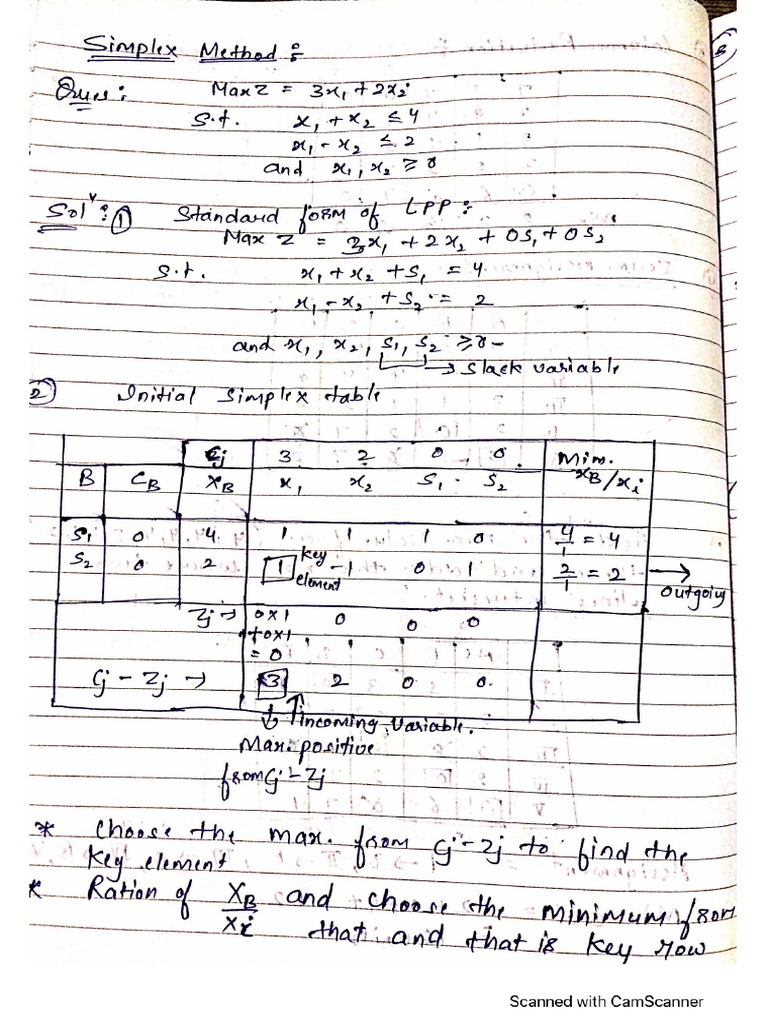 Simplex Method:
Ques: Max Z = 3x₁ + 2x₂
S.t. x₁ + x₂ ≤ 4
x₁ - x₂ ≤ 2
and x₁, x₂ ≥ 0
Solⁿ: ① Standard form of LPP:
Max Z = 3x₁ + 2x₂ + 0s₁ + 0s₂
S.t. x₁ + x₂ + s₁ = 4
x₁ - x₂ + s₂ = 2
and x₁, x₂, s₁, s₂ ≥ 0
→ Slack variable
② Initial Simplex table
Cj 3 2 0 0 Min.
B CB XB x₁ x₂ S₁ S₂ XB/xi
S₁ 0 4 1 1 1 0 4/1 = 4
S₂ 0 2 1 key element -1 0 1 2/1 = 2 → outgoing
Zj → 0x1 0 0 0
+0x1
= 0
Cj - Zj → 3 2 0 0
↓ ↑ incoming variable.
Max. positive
from Cj - Zj
* Choose the max. from Cj - Zj to find the
key element
* Ration of XB/Xi and choose the minimum from
that and that is key row
Scanned with CamScanner